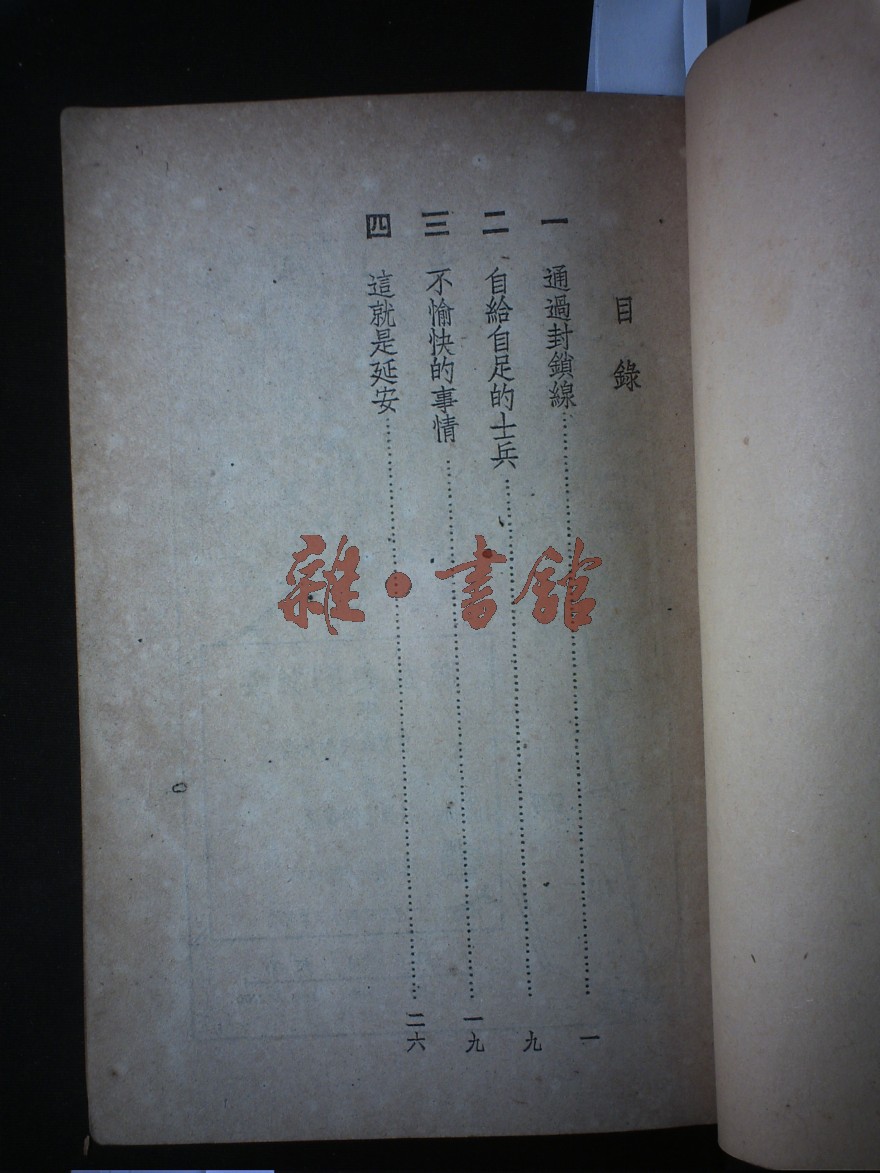 目錄
一 通過封鎖線……一
二 自給自足的士兵……九
三 不愉快的事情……一九
四 這就是延安……二六
雜・書館